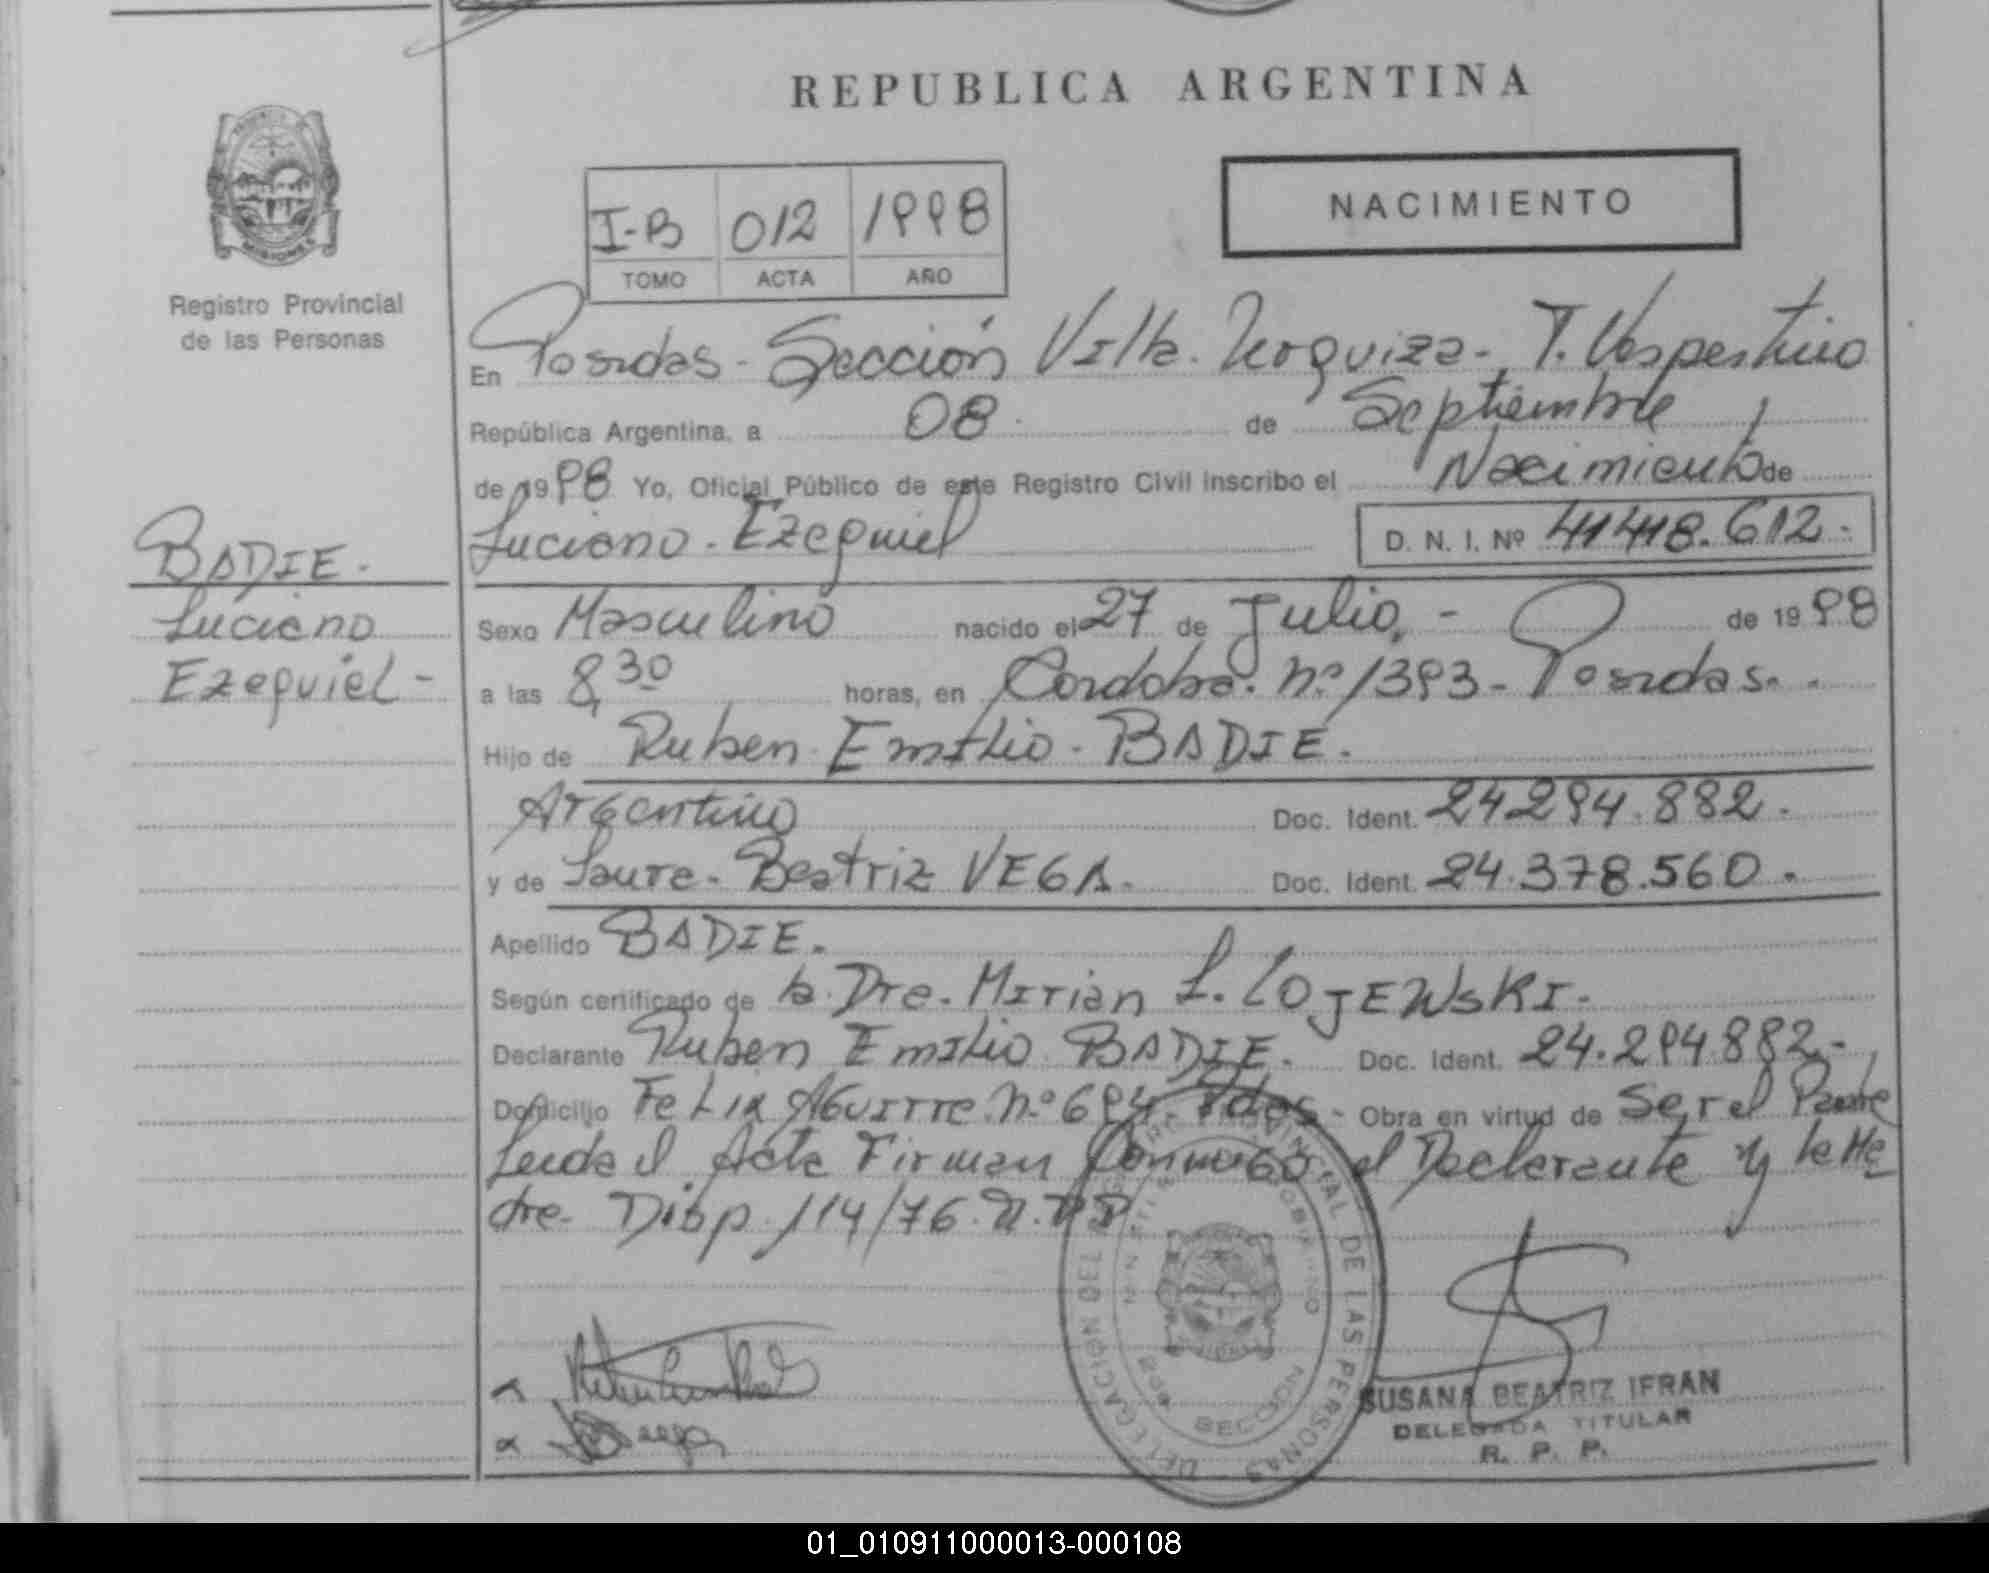 REPUBLICA ARGENTINA
NACIMIENTO
I-B 012 1998
TOMO ACTA AÑO
MISIONES
Registro Provincial
de las Personas
En Posadas - Sección Villa Urquiza - T. Vespertino
República Argentina, a 08 de Septiembre
de 1998 Yo, Oficial Público de este Registro Civil inscribo el Nacimiento de
Luciano - Ezequiel D. N. I. Nº 41418.612.-
BADIE.-
Luciano
Ezequiel-
Sexo Masculino nacido el 27 de Julio.- de 1998
a las 8,30 horas, en Cordoba. nº 1393 - Posadas.-
Hijo de Ruben Emilio - BADIE.
Argentino Doc. Ident. 24294.882.-
y de Laura - Beatriz VEGA. Doc. Ident. 24.378.560.-
Apellido BADIE.
Según certificado de la Dra. Mirian L. LOJEWSKI.
Declarante Ruben Emilio BADIE. Doc. Ident. 24.294.882.-
Domicilio Felix Aguirre nº 694. Pdas - Obra en virtud de Ser el Padre
Leida el Acta Firman Conmigo el Declarante y la Ma
dre. Disp. 114/76.
DELEGACION DEL REGISTRO PROVINCIAL DE LAS PERSONAS
SECCION
SUSANA BEATRIZ IFRAN
DELEGADA TITULAR
R. P. P.
01_010911000013-000108